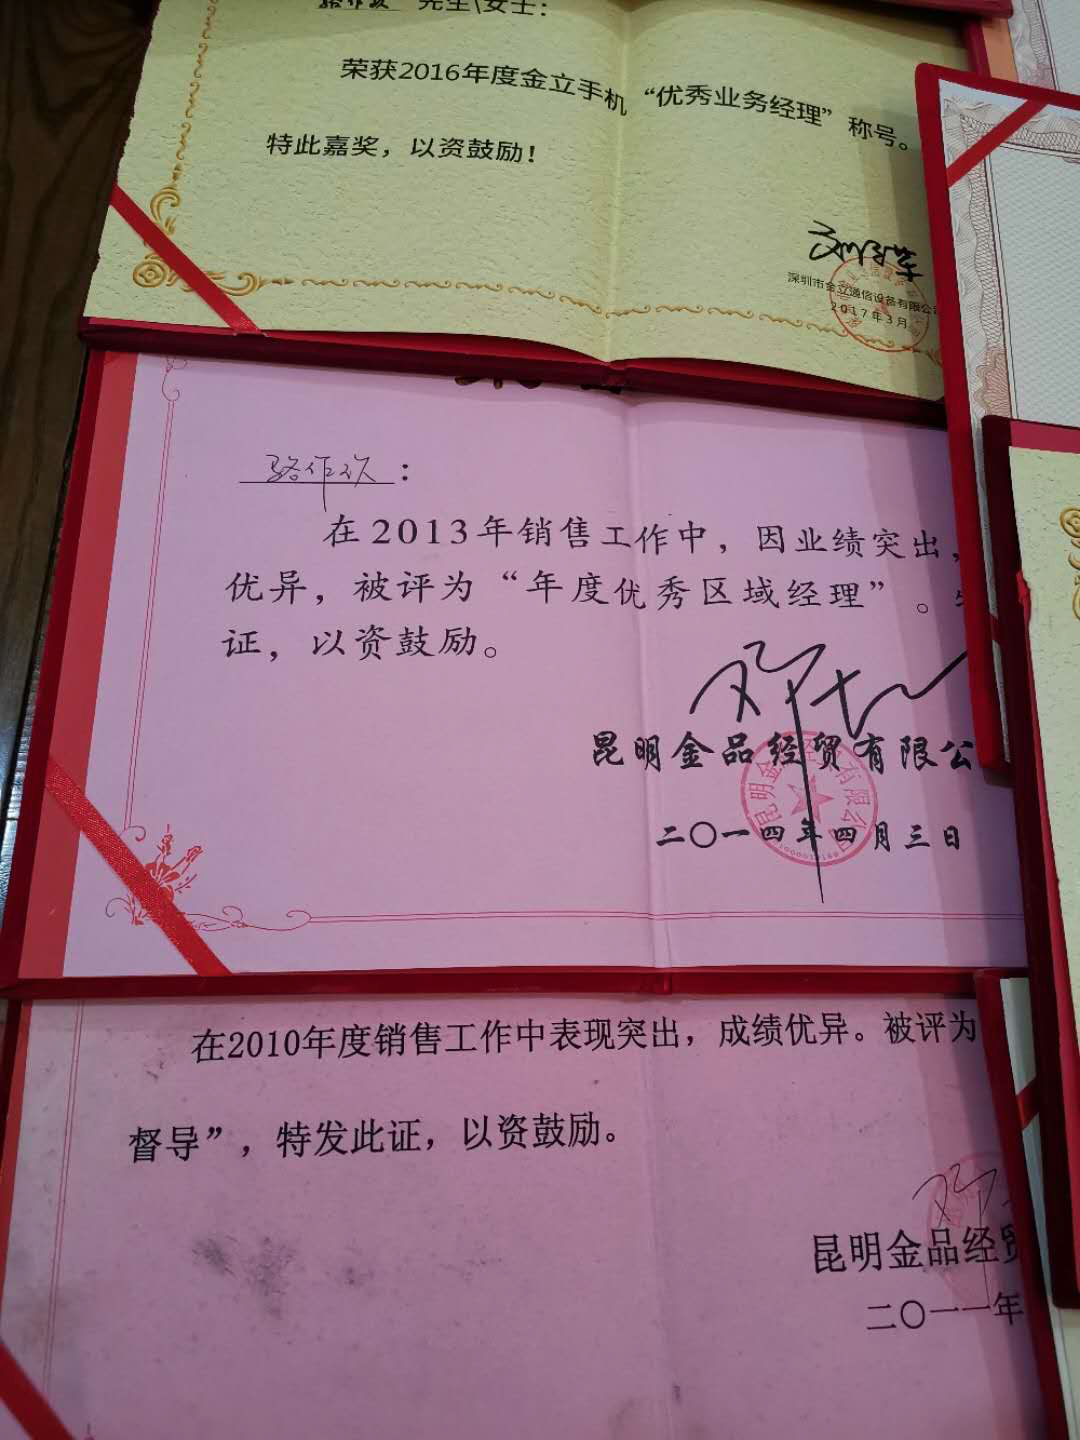 先生\女士：
荣获2016年度金立手机“优秀业务经理”称号。
特此嘉奖，以资鼓励！
深圳市金立通信设备有限公司
2017年3月
骆作欢：
在2013年销售工作中，因业绩突出，
优异，被评为“年度优秀区域经理”。
证，以资鼓励。
昆明金品经贸有限公
二〇一四年四月三日
在2010年度销售工作中表现突出，成绩优异。被评为
督导”，特发此证，以资鼓励。
昆明金品经贸
二〇一一年